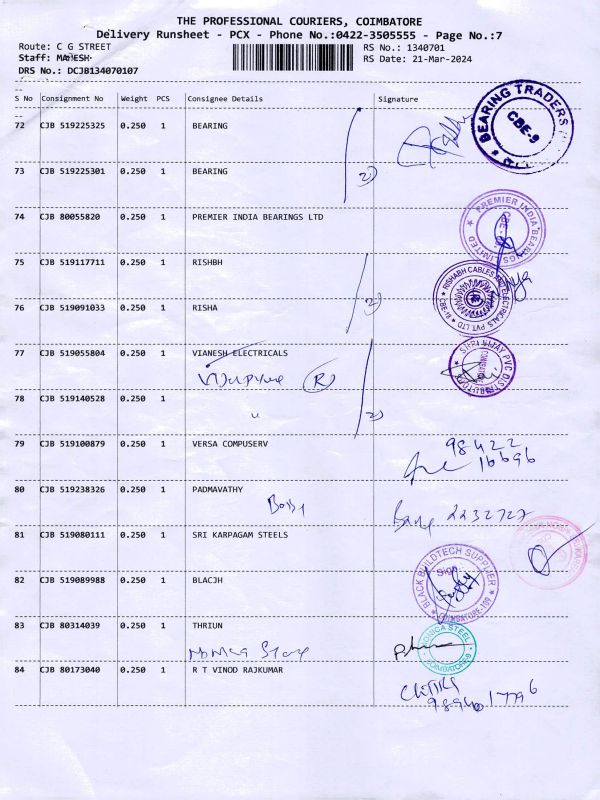 THE PROFESSIONAL COURIERS, COIMBATORE
Delivery Runsheet - PCX - Phone No.:0422-3505555 - Page No.:7
Route: C G STREET
RS No.: 1340701
Staff: MAHESH
RS Date: 21-Mar-2024
DRS No.: DCJB134070107
S No Consignment No Weight PCS Consignee Details Signature
72 CJB 519225325 0.250 1 BEARING
BEARING TRADERS
CBE-9
73 CJB 519225301 0.250 1 BEARING
2)
74 CJB 80055820 0.250 1 PREMIER INDIA BEARINGS LTD
PREMIER INDIA BEARINGS LIMITED
75 CJB 519117711 0.250 1 RISHBH
RISHABH CABLES AND ELECTRICALS PVT LTD
76 CJB 519091033 0.250 1 RISHA
2)
77 CJB 519055804 0.250 1 VIANESH ELECTRICALS
(R)
SHRI VIJAY PVC DISTRIBUTORS
COIMBATORE
78 CJB 519140528 0.250 1
" 2)
79 CJB 519100879 0.250 1 VERSA COMPUSERV
98422
16696
80 CJB 519238326 0.250 1 PADMAVATHY
2232727
81 CJB 519080111 0.250 1 SRI KARPAGAM STEELS
82 CJB 519089988 0.250 1 BLACJH
BLACK BUILDTECH SUPPLIER
Sign
COIMBATORE-109
83 CJB 80314039 0.250 1 THRIUN
MONICA STEEL
COIMBATORE-9
84 CJB 80173040 0.250 1 R T VINOD RAJKUMAR